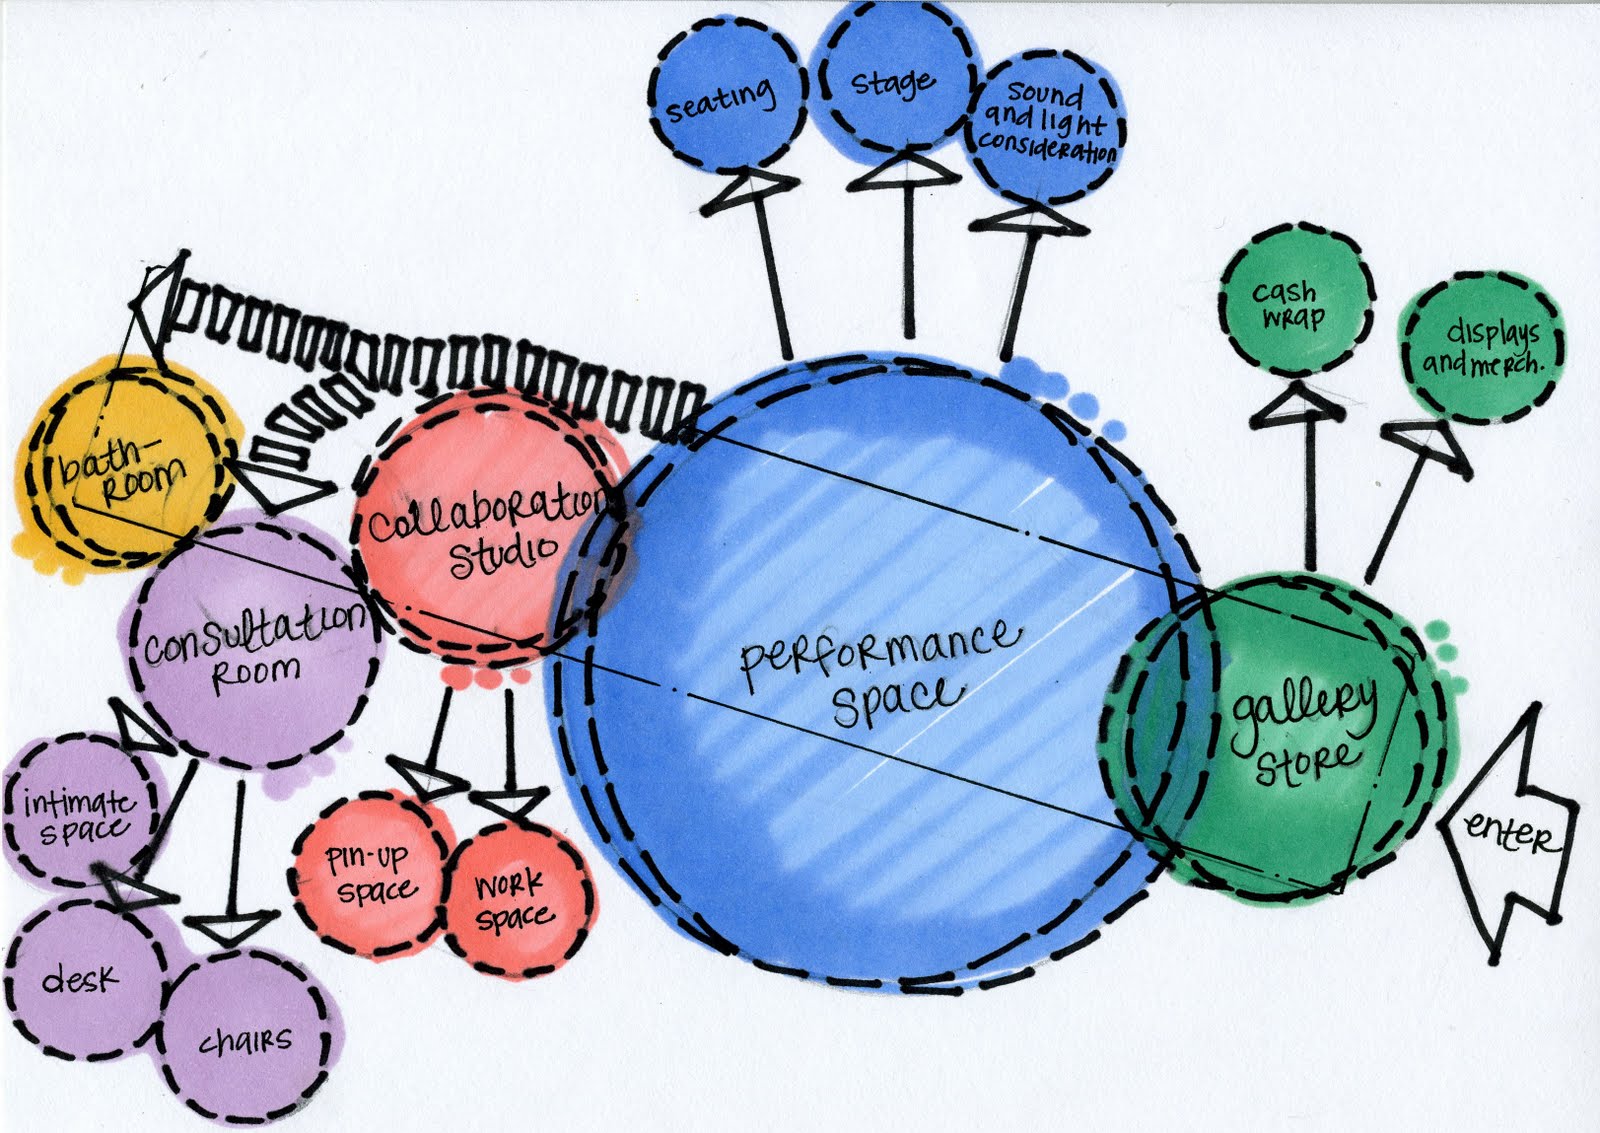 seating
stage
sound
and light
consideration
cash
wrap
displays
and merch.
bath-
room
collaboration
studio
consultation
room
performance
space
gallery
store
enter
intimate
space
pin-up
space
work
space
desk
chairs